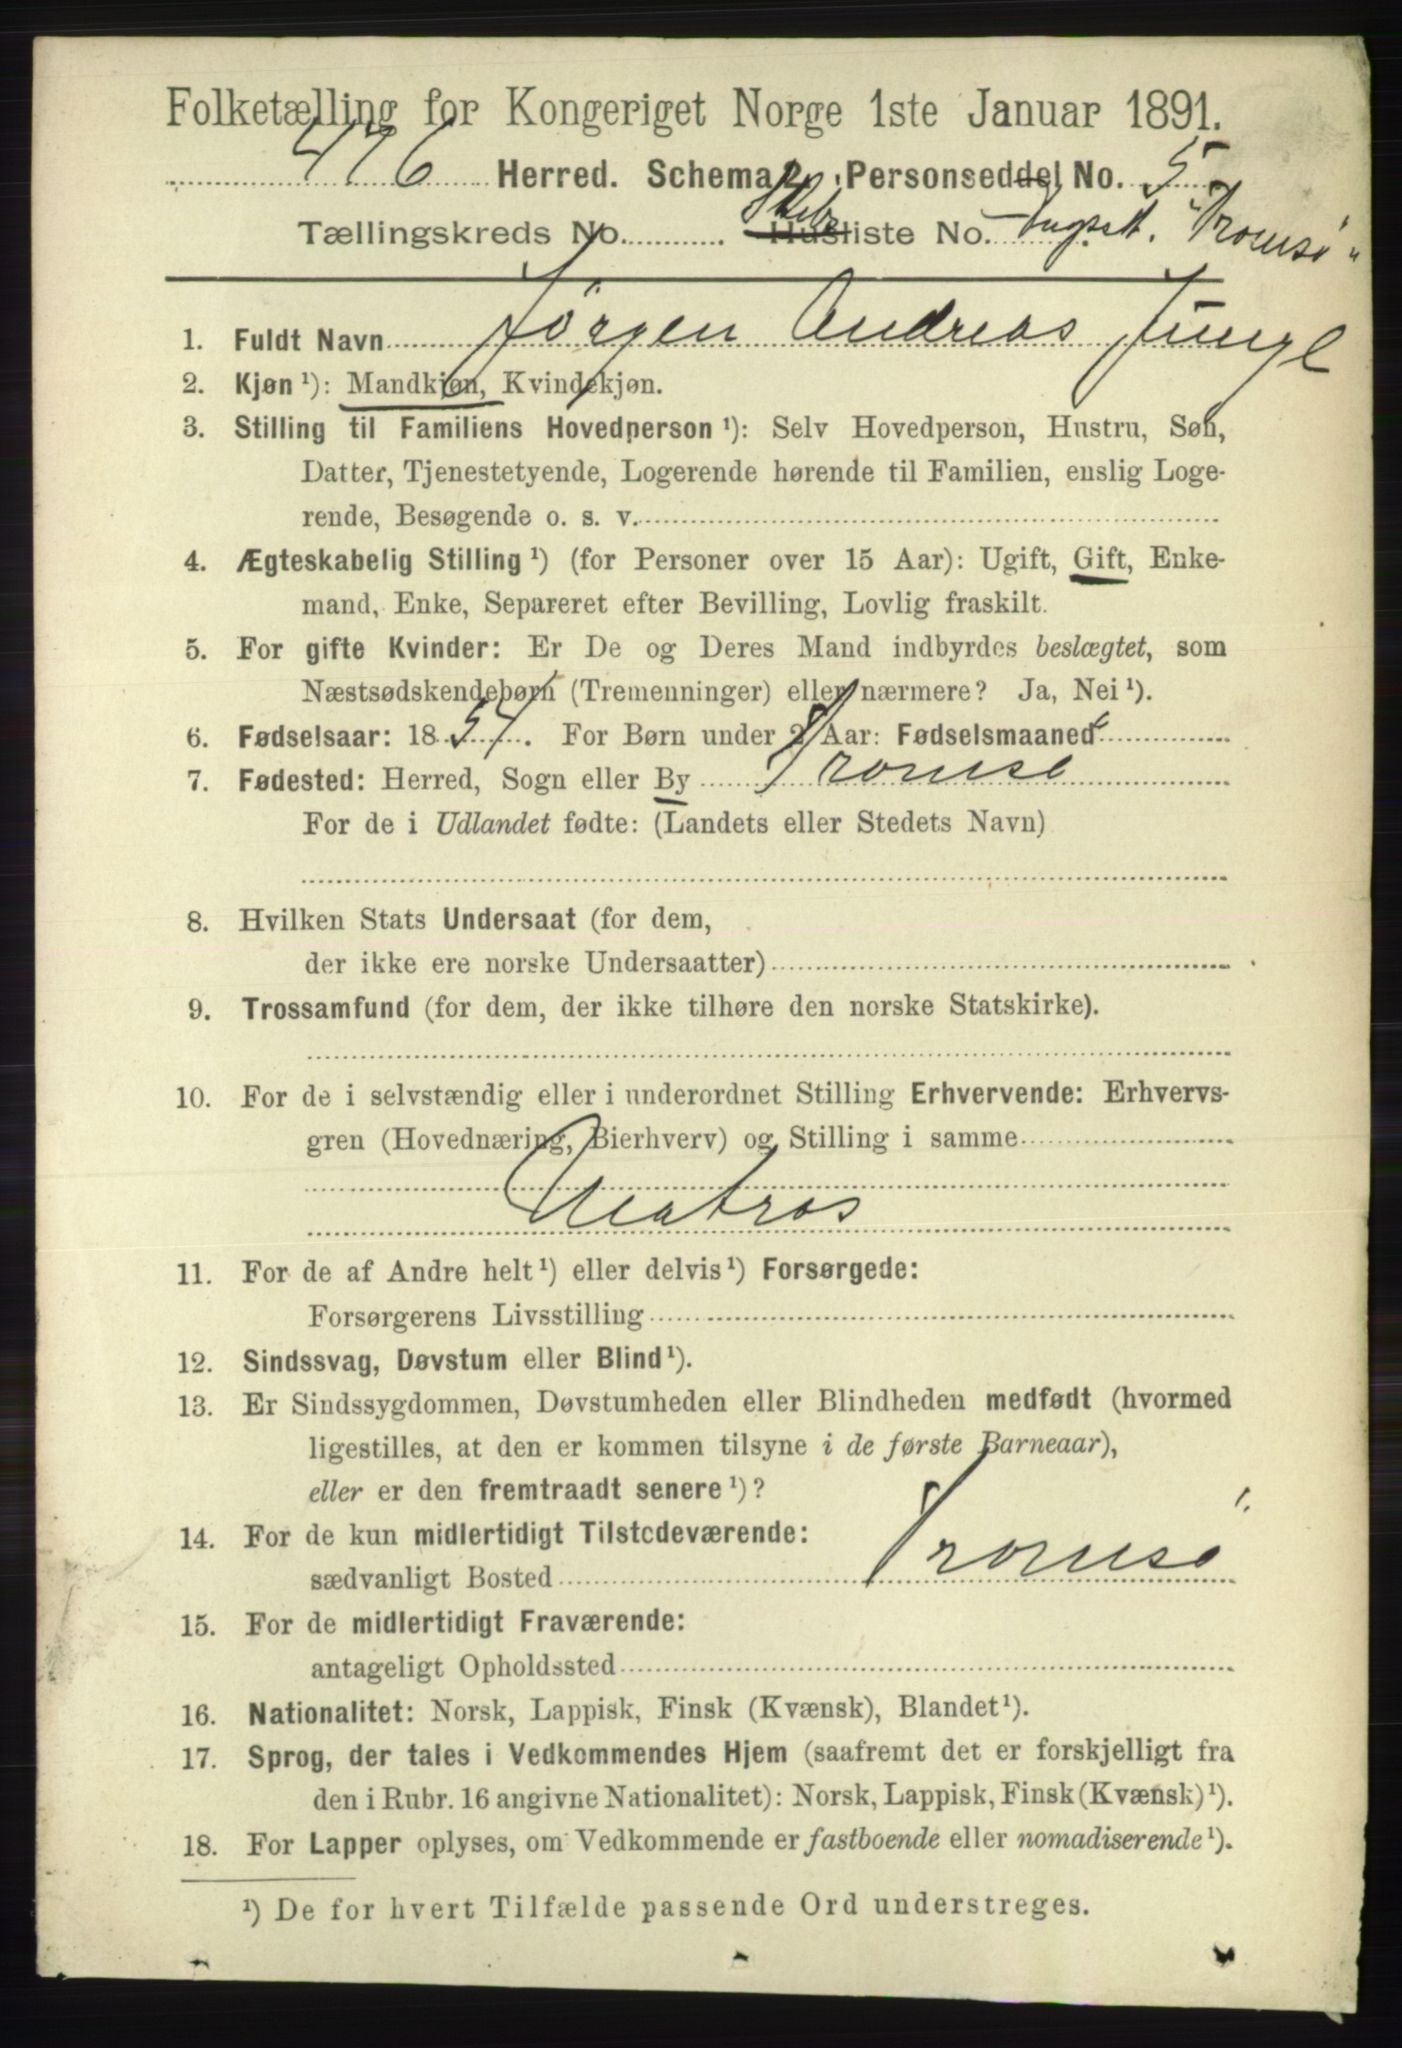 Folketælling for Kongeriget Norge 1ste Januar 1891.
476 Herred. Schema 2. Personseddel No. 5
Tællingskreds No. Husliste No. "Tromsø"
1. Fuldt Navn Jörgen Andreas
2. Kjøn ¹): Mandkjøn, Kvindekjøn.
3. Stilling til Familiens Hovedperson ¹): Selv Hovedperson, Hustru, Søn,
Datter, Tjenestetyende, Logerende hørende til Familien, enslig Loge-
rende, Besøgende o. s. v.
4. Ægteskabelig Stilling ¹) (for Personer over 15 Aar): Ugift, Gift, Enke-
mand, Enke, Separeret efter Bevilling, Lovlig fraskilt.
5. For gifte Kvinder: Er De og Deres Mand indbyrdes beslægtet, som
Næstsødskendebørn (Tremenninger) eller nærmere? Ja, Nei ¹).
6. Fødselsaar: 1857. For Børn under 2 Aar: Fødselsmaaned
7. Fødested: Herred, Sogn eller By Tromsø
For de i Udlandet fødte: (Landets eller Stedets Navn)
8. Hvilken Stats Undersaat (for dem,
der ikke ere norske Undersaatter)
9. Trossamfund (for dem, der ikke tilhøre den norske Statskirke).
10. For de i selvstændig eller i underordnet Stilling Erhvervende: Erhvervs-
gren (Hovednæring, Bierhverv) og Stilling i samme
Matros
11. For de af Andre helt ¹) eller delvis ¹) Forsørgede:
Forsørgerens Livsstilling
12. Sindssvag, Døvstum eller Blind ¹).
13. Er Sindssygdommen, Døvstumheden eller Blindheden medfødt (hvormed
ligestilles, at den er kommen tilsyne i de første Barneaar),
eller er den fremtraadt senere ¹)?
14. For de kun midlertidigt Tilstedeværende:
sædvanligt Bosted Tromsø
15. For de midlertidigt Fraværende:
antageligt Opholdssted
16. Nationalitet: Norsk, Lappisk, Finsk (Kvænsk), Blandet ¹).
17. Sprog, der tales i Vedkommendes Hjem (saafremt det er forskjelligt fra
den i Rubr. 16 angivne Nationalitet): Norsk, Lappisk, Finsk (Kvænsk) ¹).
18. For Lapper oplyses, om Vedkommende er fastboende eller nomadiserende ¹).
¹) De for hvert Tilfælde passende Ord understreges.